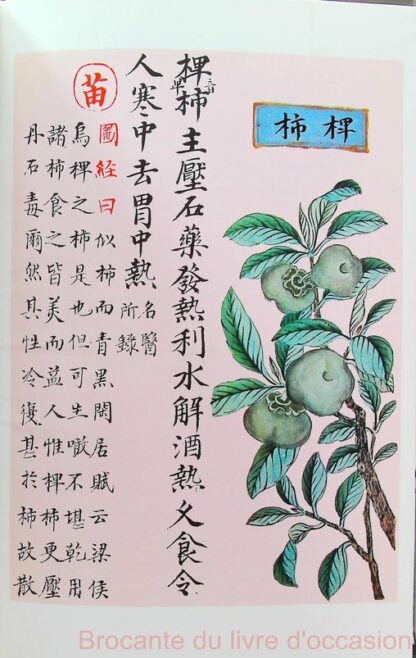 椑柿
椑音卑柿主壓石藥發熱利水解酒熱久食令
人寒中去胃中熱名醫所錄
苗
圖經曰似柿而青黑閑居賦云梁侯
烏椑之柿是也但可生噉不堪乾用
諸柿食之皆美而益人惟椑柿更壓
丹石毒爾然其性冷復甚於柿故散
Brocante du livre d'occasion